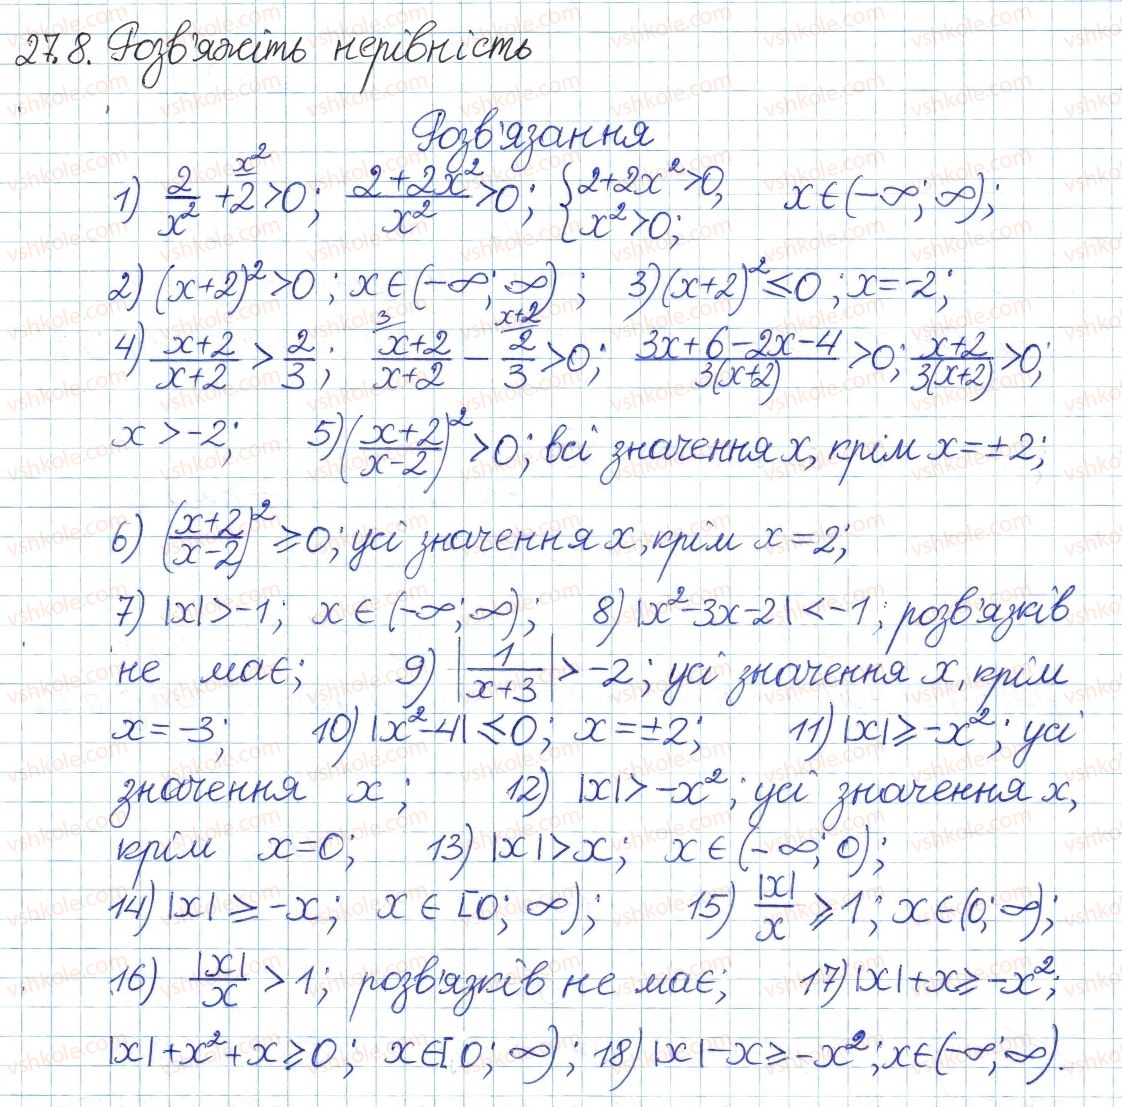 27.8. Розв'яжіть нерівність
Розв'язання
1) 2/x² + 2 > 0; (x²) (2+2x²)/x² > 0; { 2+2x² > 0, x² > 0; x ∈ (-∞; ∞);
2) (x+2)² > 0; x ∈ (-∞; ∞); 3) (x+2)² ≤ 0; x = -2;
4) (x+2)/(x+2) > 2/3; (x+2)/(x+2) (3) - 2/3 (x+2) > 0; (3x+6-2x-4)/(3(x+2)) > 0; (x+2)/(3(x+2)) > 0;
x > -2; 5) ((x+2)/(x-2))² > 0; всі значення x, крім x = ±2;
6) ((x+2)/(x-2))² ≥ 0; усі значення x, крім x = 2;
7) |x| > -1; x ∈ (-∞; ∞); 8) |x²-3x-2| < -1; розв'язків
не має; 9) |1/(x+3)| > -2; усі значення x, крім
x = -3; 10) |x²-4| ≤ 0; x = ±2; 11) |x| ≥ -x²; усі
значення x; 12) |x| > -x²; усі значення x,
крім x=0; 13) |x| > x; x ∈ (-∞; 0);
14) |x| ≥ -x; x ∈ [0; ∞); 15) |x|/x ≥ 1; x ∈ (0; ∞);
16) |x|/x > 1; розв'язків не має; 17) |x| + x ≥ -x²;
|x| + x² + x ≥ 0; x ∈ [0; ∞); 18) |x| - x ≥ -x²; x ∈ (-∞; ∞).